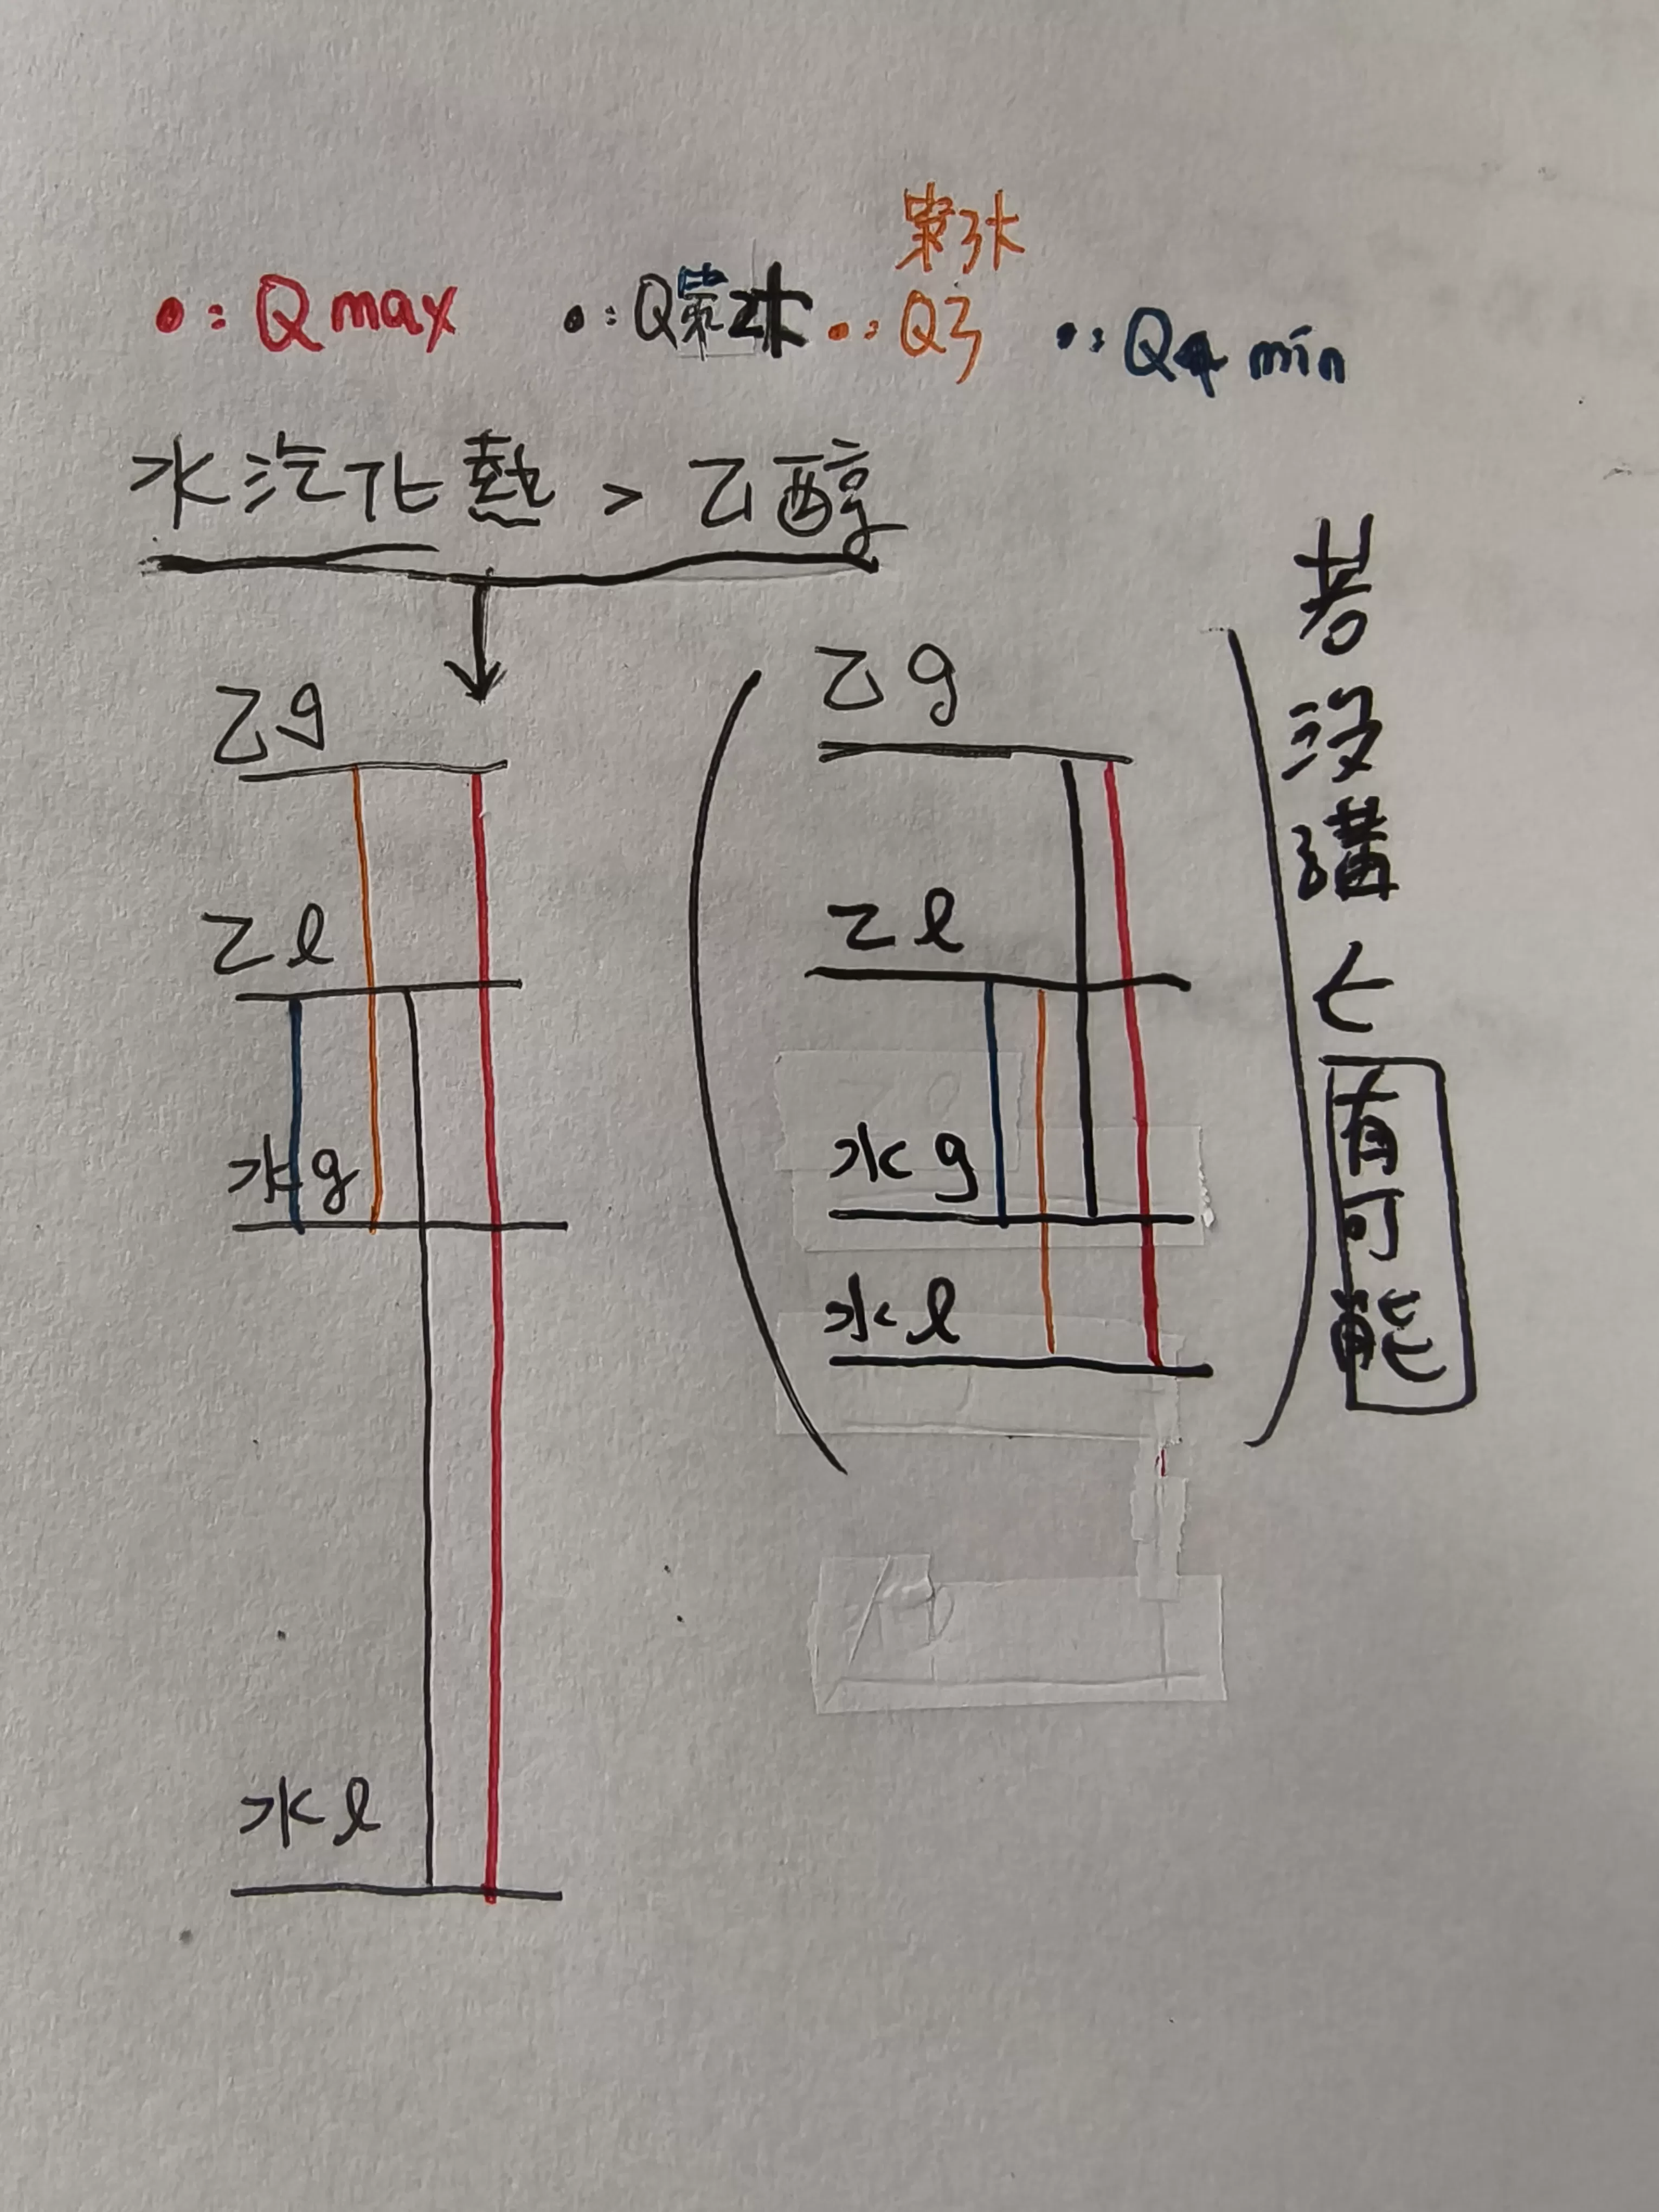 第3大
•: Q max •: Q第2大 •: Q3 •: Q4 min
水汽化熱 > 乙醇
乙g
乙l
水g
水l
乙g
乙l
水g
水l
若沒講
有可能